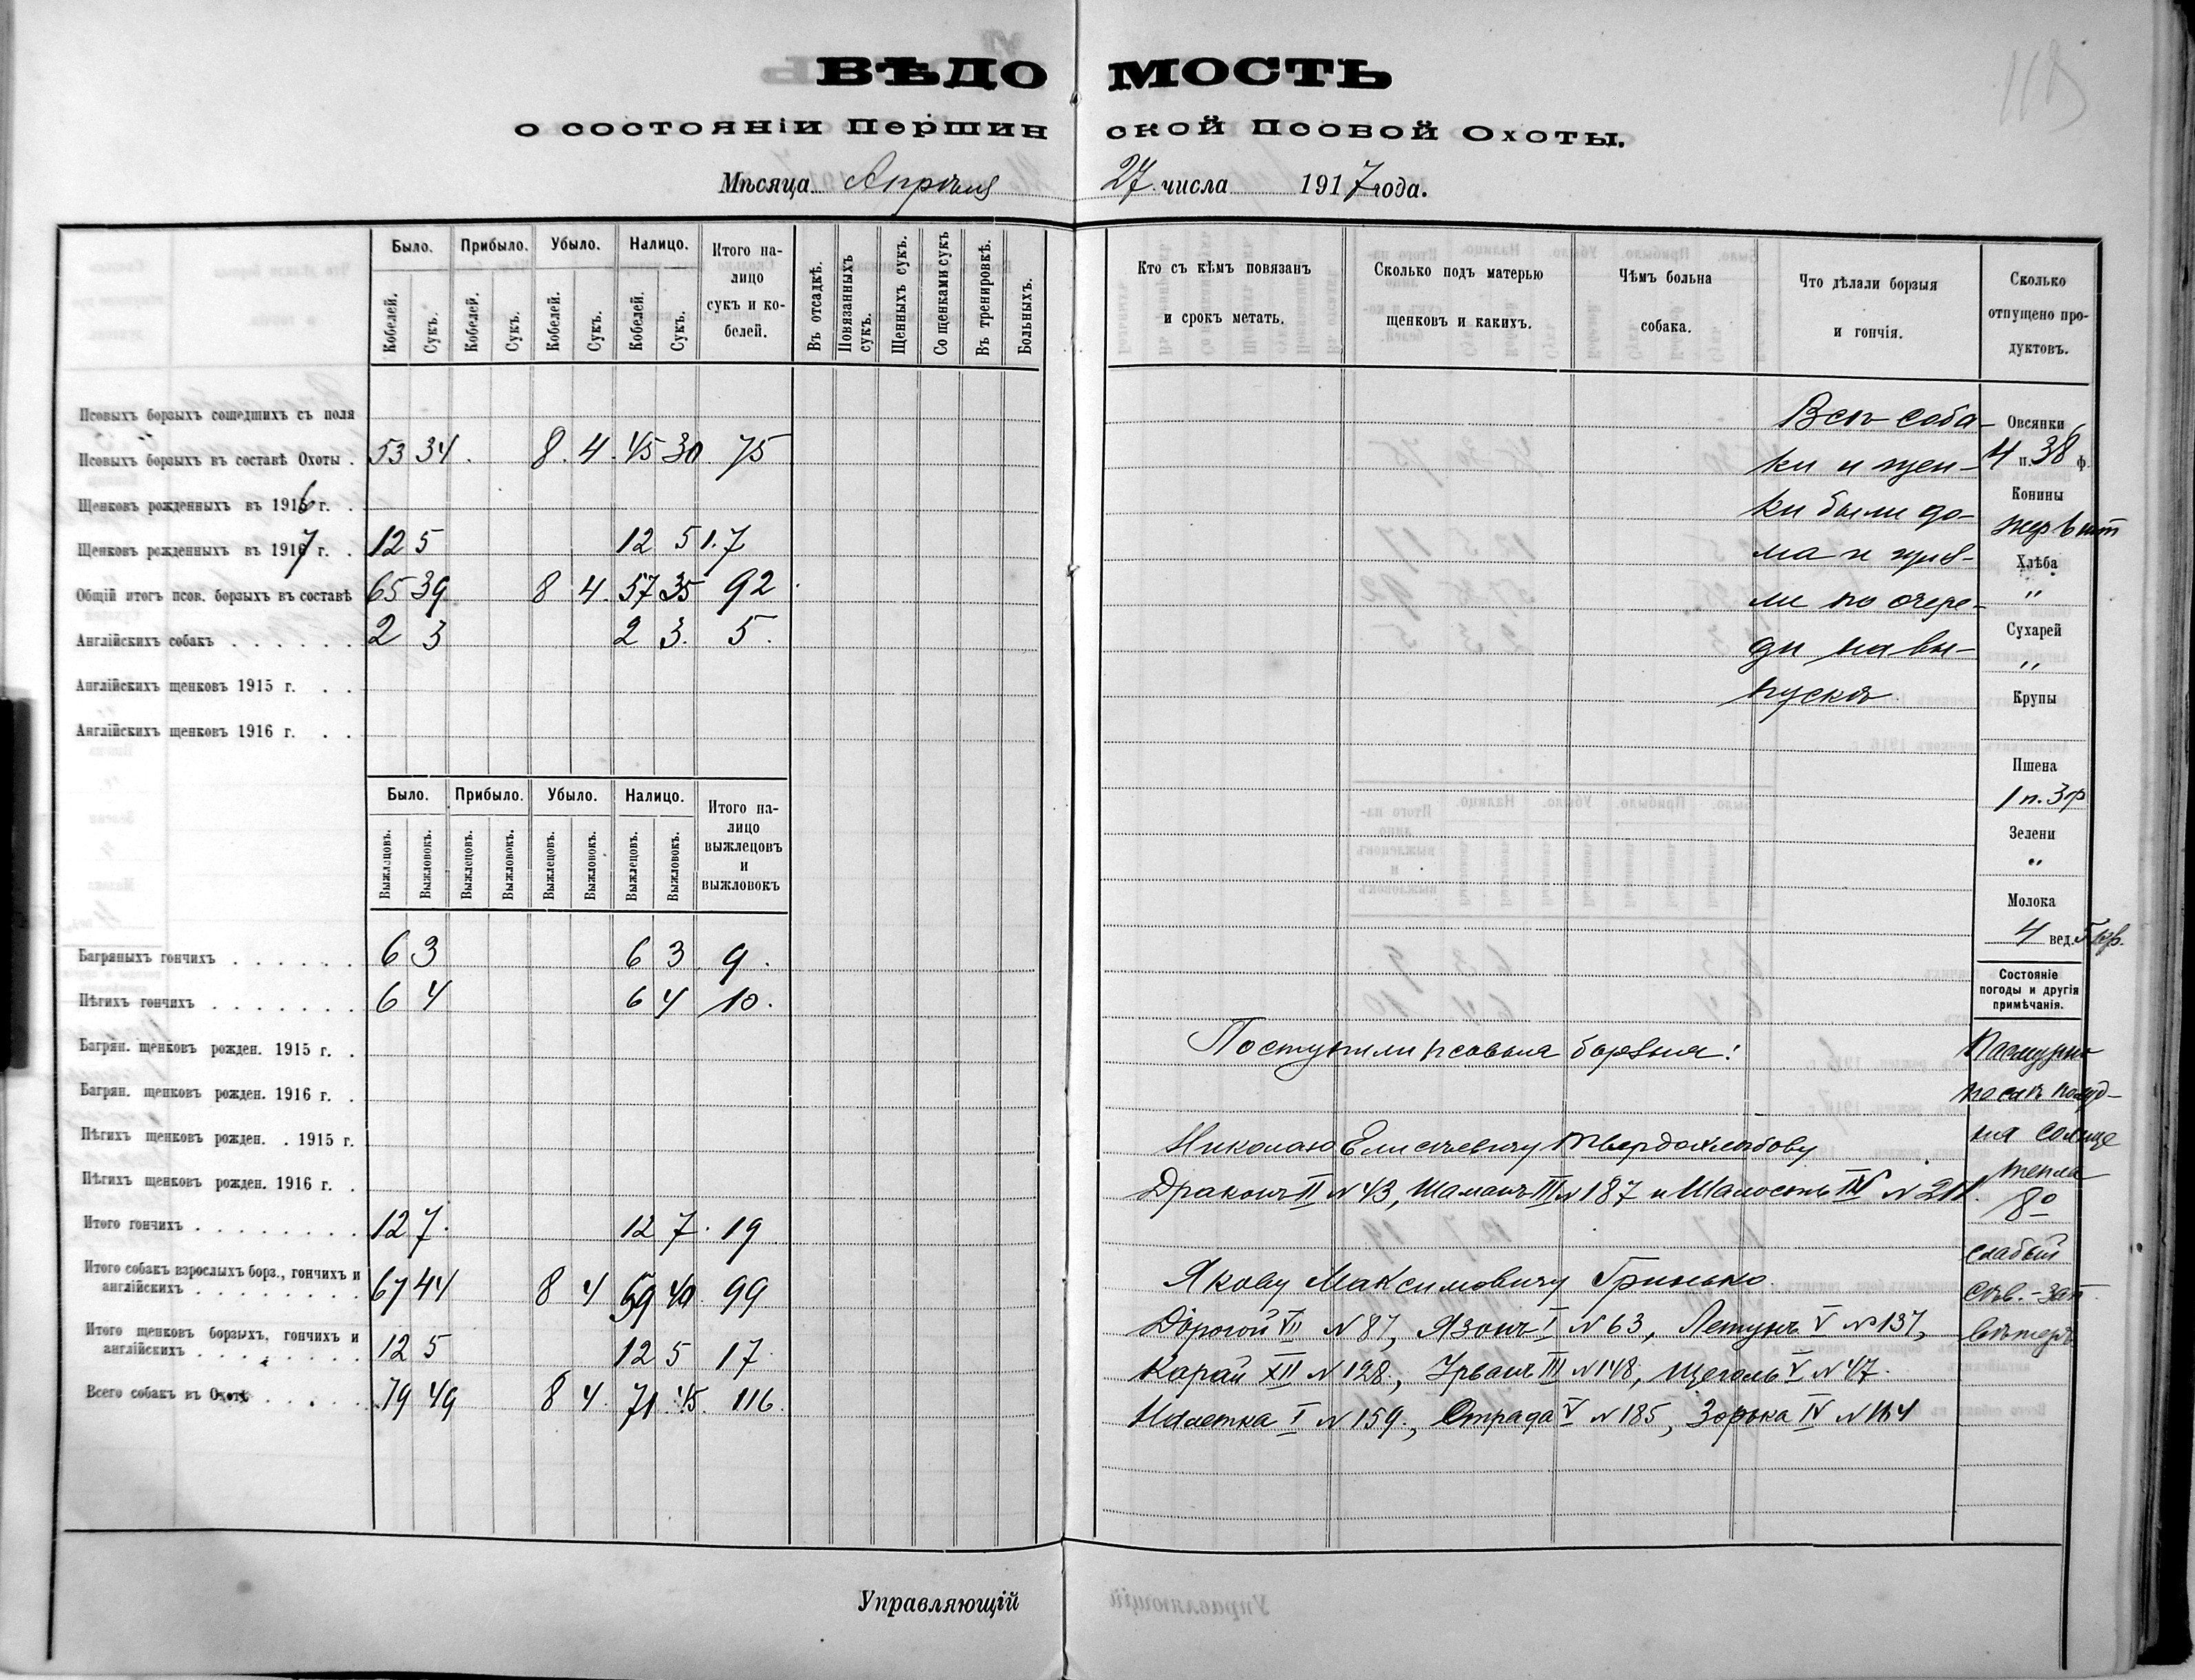 ВѢДОМОСТЬ
о состоянiи Першинской Псовой Охоты.
Мѣсяца Апрѣля 27 числа 1917 года.
118
Было. Прибыло. Убыло. Налицо. Итого налицо сукъ и кобелей.
Кобелей. Сукъ. Кобелей. Сукъ. Кобелей. Сукъ. Кобелей. Сукъ.
Въ отсадкѣ. Повязанныхъ сукъ. Щенныхъ сукъ. Со щенками сукъ Въ тренировкѣ. Больныхъ.
Псовыхъ борзыхъ сошедшихъ съ поля
Псовыхъ борзыхъ въ составѣ Охоты . 53 34 . 8 . 4 . 45 30 . 75
Щенковъ рожденныхъ въ 1916 г. .
Щенковъ рожденныхъ въ 1917 г. . 12 5 12 5 17
Общiй итогъ псов. борзыхъ въ составѣ 65 39 8 4 . 57 35 92
Англiйскихъ собакъ . . . . . . 2 3 2 3 . 5 .
Англiйскихъ щенковъ 1915 г. . .
Англiйскихъ щенковъ 1916 г. . .
Было. Прибыло. Убыло. Налицо. Итого налицо выжлецовъ и выжловокъ
Выжлецовъ. Выжловокъ. Выжлецовъ. Выжловокъ. Выжлецовъ. Выжловокъ. Выжлецовъ. Выжловокъ.
Багряныхъ гончихъ . . . . . . 6 3 6 3 9 .
Пѣгихъ гончихъ . . . . . . . 6 4 6 4 10 .
Багрян. щенковъ рожден. 1915 г. .
Багрян. щенковъ рожден. 1916 г. .
Пѣгихъ щенковъ рожден. . 1915 г.
Пѣгихъ щенковъ рожден. 1916 г. .
Итого гончихъ . . . . . . . . 12 7 . 12 7 . 19
Итого собакъ взрослыхъ борз., гончихъ и
англiйскихъ . . . . . . . . . 67 44 8 4 59 40 . 99
Итого щенковъ борзыхъ, гончихъ и
англiйскихъ . . . . . . . . . 12 5 12 5 17
Всего собакъ въ Охотѣ . . . . . 79 49 8 4 . 71 45 . 116 .
Управляющiй
Кто съ кѣмъ повязанъ и срокъ метать.
Сколько подъ матерью щенковъ и какихъ.
Чѣмъ больна собака.
Что дѣлали борзыя и гончiя.
Сколько отпущено продуктовъ.
Всѣ соба-
ки и щен-
ки были до-
ма и гуля-
ли по очере-
ди на вы-
пускѣ
Овсянки
4 п. 38 ф.
Конины
жер 6 шт
Хлѣба
"
Сухарей
"
Крупы
Пшена
1 п. 3 ф
Зелени
"
Молока
4 вед.
Состоянiе погоды и другiя примѣчанiя.
Пасмурно
послѣ полуд-
ня солнце
тепла
8°
слабый
Сѣв. - зап.
вѣтеръ
Поступили псовыя борзыя:
Николаю Елисѣевичу Твердохлѣбову
Драконъ II № 43, Шаманъ III № 187 и Шалость IV № 211.
Якову Максимовичу Гринько.
Дорогой VII № 87, Язонъ I № 63, Летунъ V № 137,
Карай XII № 128., Урванъ III № 148, Щеголь V № 47.
Налетка I № 159., Отрада V № 185, Зорька IV № 164